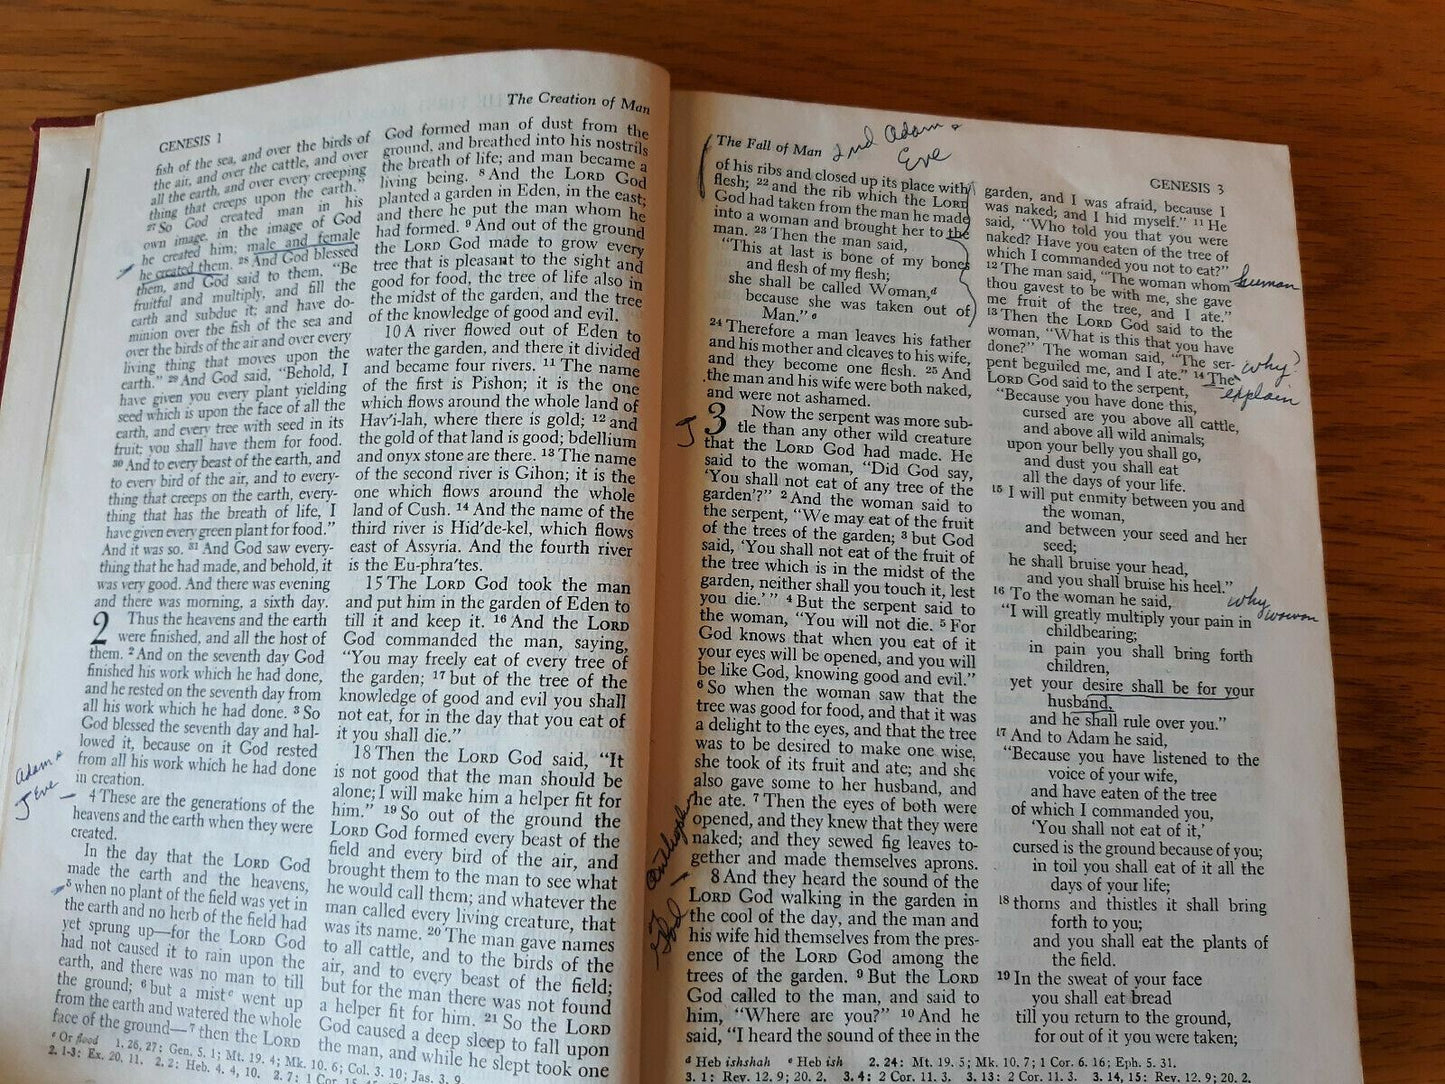 GENESIS 1
The Creation of Man
fish of the sea, and over the birds of
the air, and over the cattle, and over
all the earth, and over every creeping
thing that creeps upon the earth.”
²⁷So God created man in his
own image, in the image of God
he created him; male and female
he created them. ²⁸And God blessed
them, and God said to them, “Be
fruitful and multiply, and fill the
earth and subdue it; and have do-
minion over the fish of the sea and
over the birds of the air and over every
living thing that moves upon the
earth.” ²⁹And God said, “Behold, I
have given you every plant yielding
seed which is upon the face of all the
earth, and every tree with seed in its
fruit; you shall have them for food.
³⁰And to every beast of the earth, and
to every bird of the air, and to every-
thing that creeps on the earth, every-
thing that has the breath of life, I
have given every green plant for food.”
And it was so. ³¹And God saw every-
thing that he had made, and behold, it
was very good. And there was evening
and there was morning, a sixth day.
2 Thus the heavens and the earth
were finished, and all the host of
them. ²And on the seventh day God
finished his work which he had done,
and he rested on the seventh day from
all his work which he had done. ³So
God blessed the seventh day and hal-
lowed it, because on it God rested
from all his work which he had done
in creation.
Adam &
J Eve
4 These are the generations of the
heavens and the earth when they were
created.
In the day that the LORD God
made the earth and the heavens,
⁵when no plant of the field was yet in
the earth and no herb of the field had
yet sprung up—for the LORD God
had not caused it to rain upon the
earth, and there was no man to till
the ground; ⁶but a mist ᶜ went up
from the earth and watered the whole
face of the ground—⁷then the LORD
God formed man of dust from the
ground, and breathed into his nostrils
the breath of life; and man became a
living being. ⁸And the LORD God
planted a garden in Eden, in the east;
and there he put the man whom he
had formed. ⁹And out of the ground
the LORD God made to grow every
tree that is pleasant to the sight and
good for food, the tree of life also in
the midst of the garden, and the tree
of the knowledge of good and evil.
10 A river flowed out of Eden to
water the garden, and there it divided
and became four rivers. ¹¹The name
of the first is Pishon; it is the one
which flows around the whole land of
Hav′i-lah, where there is gold; ¹²and
the gold of that land is good; bdellium
and onyx stone are there. ¹³The name
of the second river is Gihon; it is the
one which flows around the whole
land of Cush. ¹⁴And the name of the
third river is Hid′de-kel, which flows
east of Assyria. And the fourth river
is the Eu-phra′tes.
15 The LORD God took the man
and put him in the garden of Eden to
till it and keep it. ¹⁶And the LORD
God commanded the man, saying,
“You may freely eat of every tree of
the garden; ¹⁷but of the tree of the
knowledge of good and evil you shall
not eat, for in the day that you eat of
it you shall die.”
18 Then the LORD God said, “It
is not good that the man should be
alone; I will make him a helper fit for
him.” ¹⁹So out of the ground the
LORD God formed every beast of the
field and every bird of the air, and
brought them to the man to see what
he would call them; and whatever the
man called every living creature, that
was its name. ²⁰The man gave names
to all cattle, and to the birds of the
air, and to every beast of the field;
but for the man there was not found
a helper fit for him. ²¹So the LORD
God caused a deep sleep to fall upon
the man, and while he slept took one
ᶜ Or flood 1. 26, 27: Gen. 5. 1; Mt. 19. 4; Mk. 10. 6; Col. 3. 10; Jas. 3. 9
2. 1-3: Ex. 20. 11. 2. 2: Heb. 4. 4, 10. 2. 7: 1 Cor.
The Fall of Man
2nd Adam &
Eve
GENESIS 3
of his ribs and closed up its place with
flesh; ²²and the rib which the LORD
God had taken from the man he made
into a woman and brought her to the
man. ²³Then the man said,
“This at last is bone of my bones
and flesh of my flesh;
she shall be called Woman,ᵈ
because she was taken out of
Man.” ᵉ
²⁴Therefore a man leaves his father
and his mother and cleaves to his wife,
and they become one flesh. ²⁵And
the man and his wife were both naked,
and were not ashamed.
J
3 Now the serpent was more sub-
tle than any other wild creature
that the LORD God had made. He
said to the woman, “Did God say,
‘You shall not eat of any tree of the
garden’?” ²And the woman said to
the serpent, “We may eat of the fruit
of the trees of the garden; ³but God
said, ‘You shall not eat of the fruit of
the tree which is in the midst of the
garden, neither shall you touch it, lest
you die.’” ⁴But the serpent said to
the woman, “You will not die. ⁵For
God knows that when you eat of it
your eyes will be opened, and you will
be like God, knowing good and evil.”
⁶So when the woman saw that the
tree was good for food, and that it was
a delight to the eyes, and that the tree
was to be desired to make one wise,
she took of its fruit and ate; and she
also gave some to her husband, and
he ate. ⁷Then the eyes of both were
opened, and they knew that they were
naked; and they sewed fig leaves to-
gether and made themselves aprons.
God
8 And they heard the sound of the
LORD God walking in the garden in
the cool of the day, and the man and
his wife hid themselves from the pres-
ence of the LORD God among the
trees of the garden. ⁹But the LORD
God called to the man, and said to
him, “Where are you?” ¹⁰And he
said, “I heard the sound of thee in the
garden, and I was afraid, because I
was naked; and I hid myself.” ¹¹He
said, “Who told you that you were
naked? Have you eaten of the tree of
which I commanded you not to eat?”
¹²The man said, “The woman whom
thou gavest to be with me, she gave
me fruit of the tree, and I ate.”
human
¹³Then the LORD God said to the
woman, “What is this that you have
done?” The woman said, “The ser-
pent beguiled me, and I ate.” ¹⁴The
LORD God said to the serpent,
why?
explain
“Because you have done this,
cursed are you above all cattle,
and above all wild animals;
upon your belly you shall go,
and dust you shall eat
all the days of your life.
¹⁵I will put enmity between you and
the woman,
and between your seed and her
seed;
he shall bruise your head,
and you shall bruise his heel.”
¹⁶To the woman he said,
why
woman
“I will greatly multiply your pain in
childbearing;
in pain you shall bring forth
children,
yet your desire shall be for your
husband,
and he shall rule over you.”
¹⁷And to Adam he said,
“Because you have listened to the
voice of your wife,
and have eaten of the tree
of which I commanded you,
‘You shall not eat of it,’
cursed is the ground because of you;
in toil you shall eat of it all the
days of your life;
¹⁸thorns and thistles it shall bring
forth to you;
and you shall eat the plants of
the field.
¹⁹In the sweat of your face
you shall eat bread
till you return to the ground,
for out of it you were taken;
ᵈ Heb ishshah ᵉ Heb ish 2. 24: Mt. 19. 5; Mk. 10. 7; 1 Cor. 6. 16; Eph. 5. 31.
3. 1: Rev. 12. 9; 20. 2. 3. 4: 2 Cor. 11. 3. 3. 13: 2 Cor. 11. 3. 3. 14, 15: Rev. 12. 9; 20. 2.